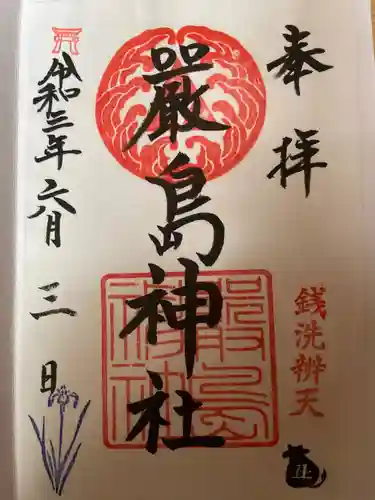 奉拝
銭洗辨天
巳
嚴島神社
嚴島神社
令和三年六月三日